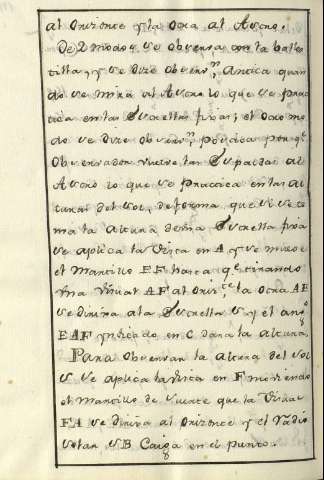 al Orizonte y la Otra al Astro.
De 2 modos se observa con la balles
tilla, y se dize observ.n Antica quan
do se mira al Astro lo que se prac
tica en las Estrellas fixas; el otro mo
do se dize observ.n postica porq.e
Observador vuelve las Espaldas al
Astro lo que se practica en las al
turas del Sol, de forma que si se to
ma la altura de una Estrella fixa
se aplica la vista en A y se mueve
el Martillo EF hasta q.e tirando
una visual AF al Oriz.te la otra AE
se dirija a la Estrella y el ang.o
EAF yndicado en C dara la altura.
Para observar la altura del Sol
se aplica la vista en F moviendo
el Martillo de suerte que la visual
FA se dirija al Orizonte y el radio
solar SB Caiga en el punto.